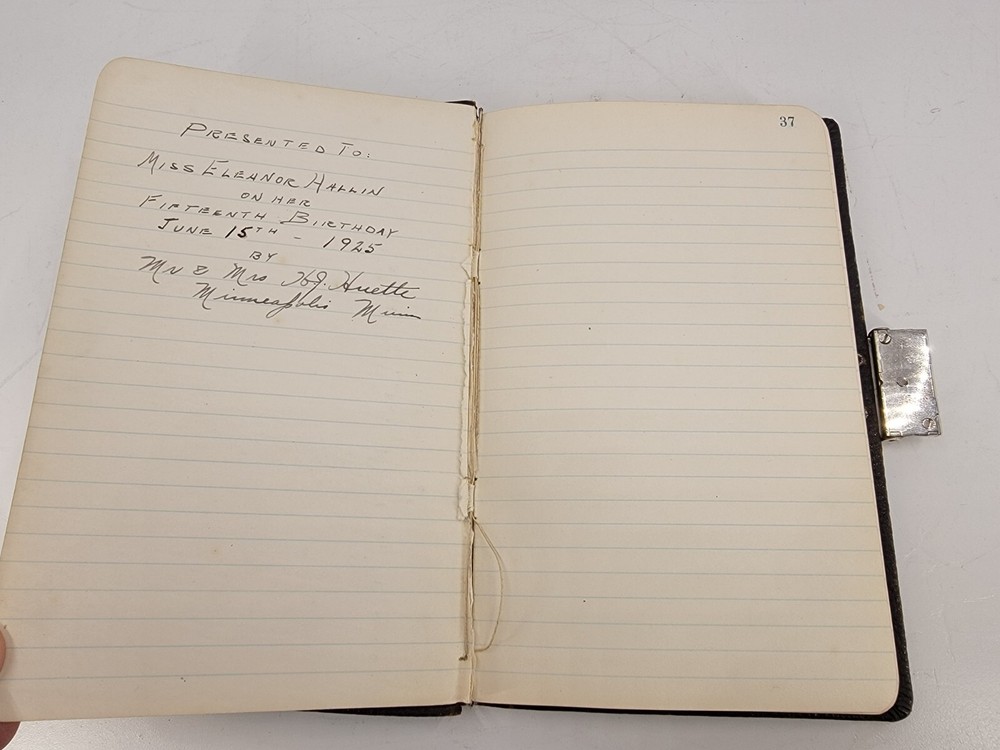 PRESENTED TO:
MISS ELEANOR HALLIN
ON HER
FIFTEENTH BIRTHDAY
JUNE 15TH - 1925
BY
Mr & Mrs H.J. Huette
Minneapolis Minn
37